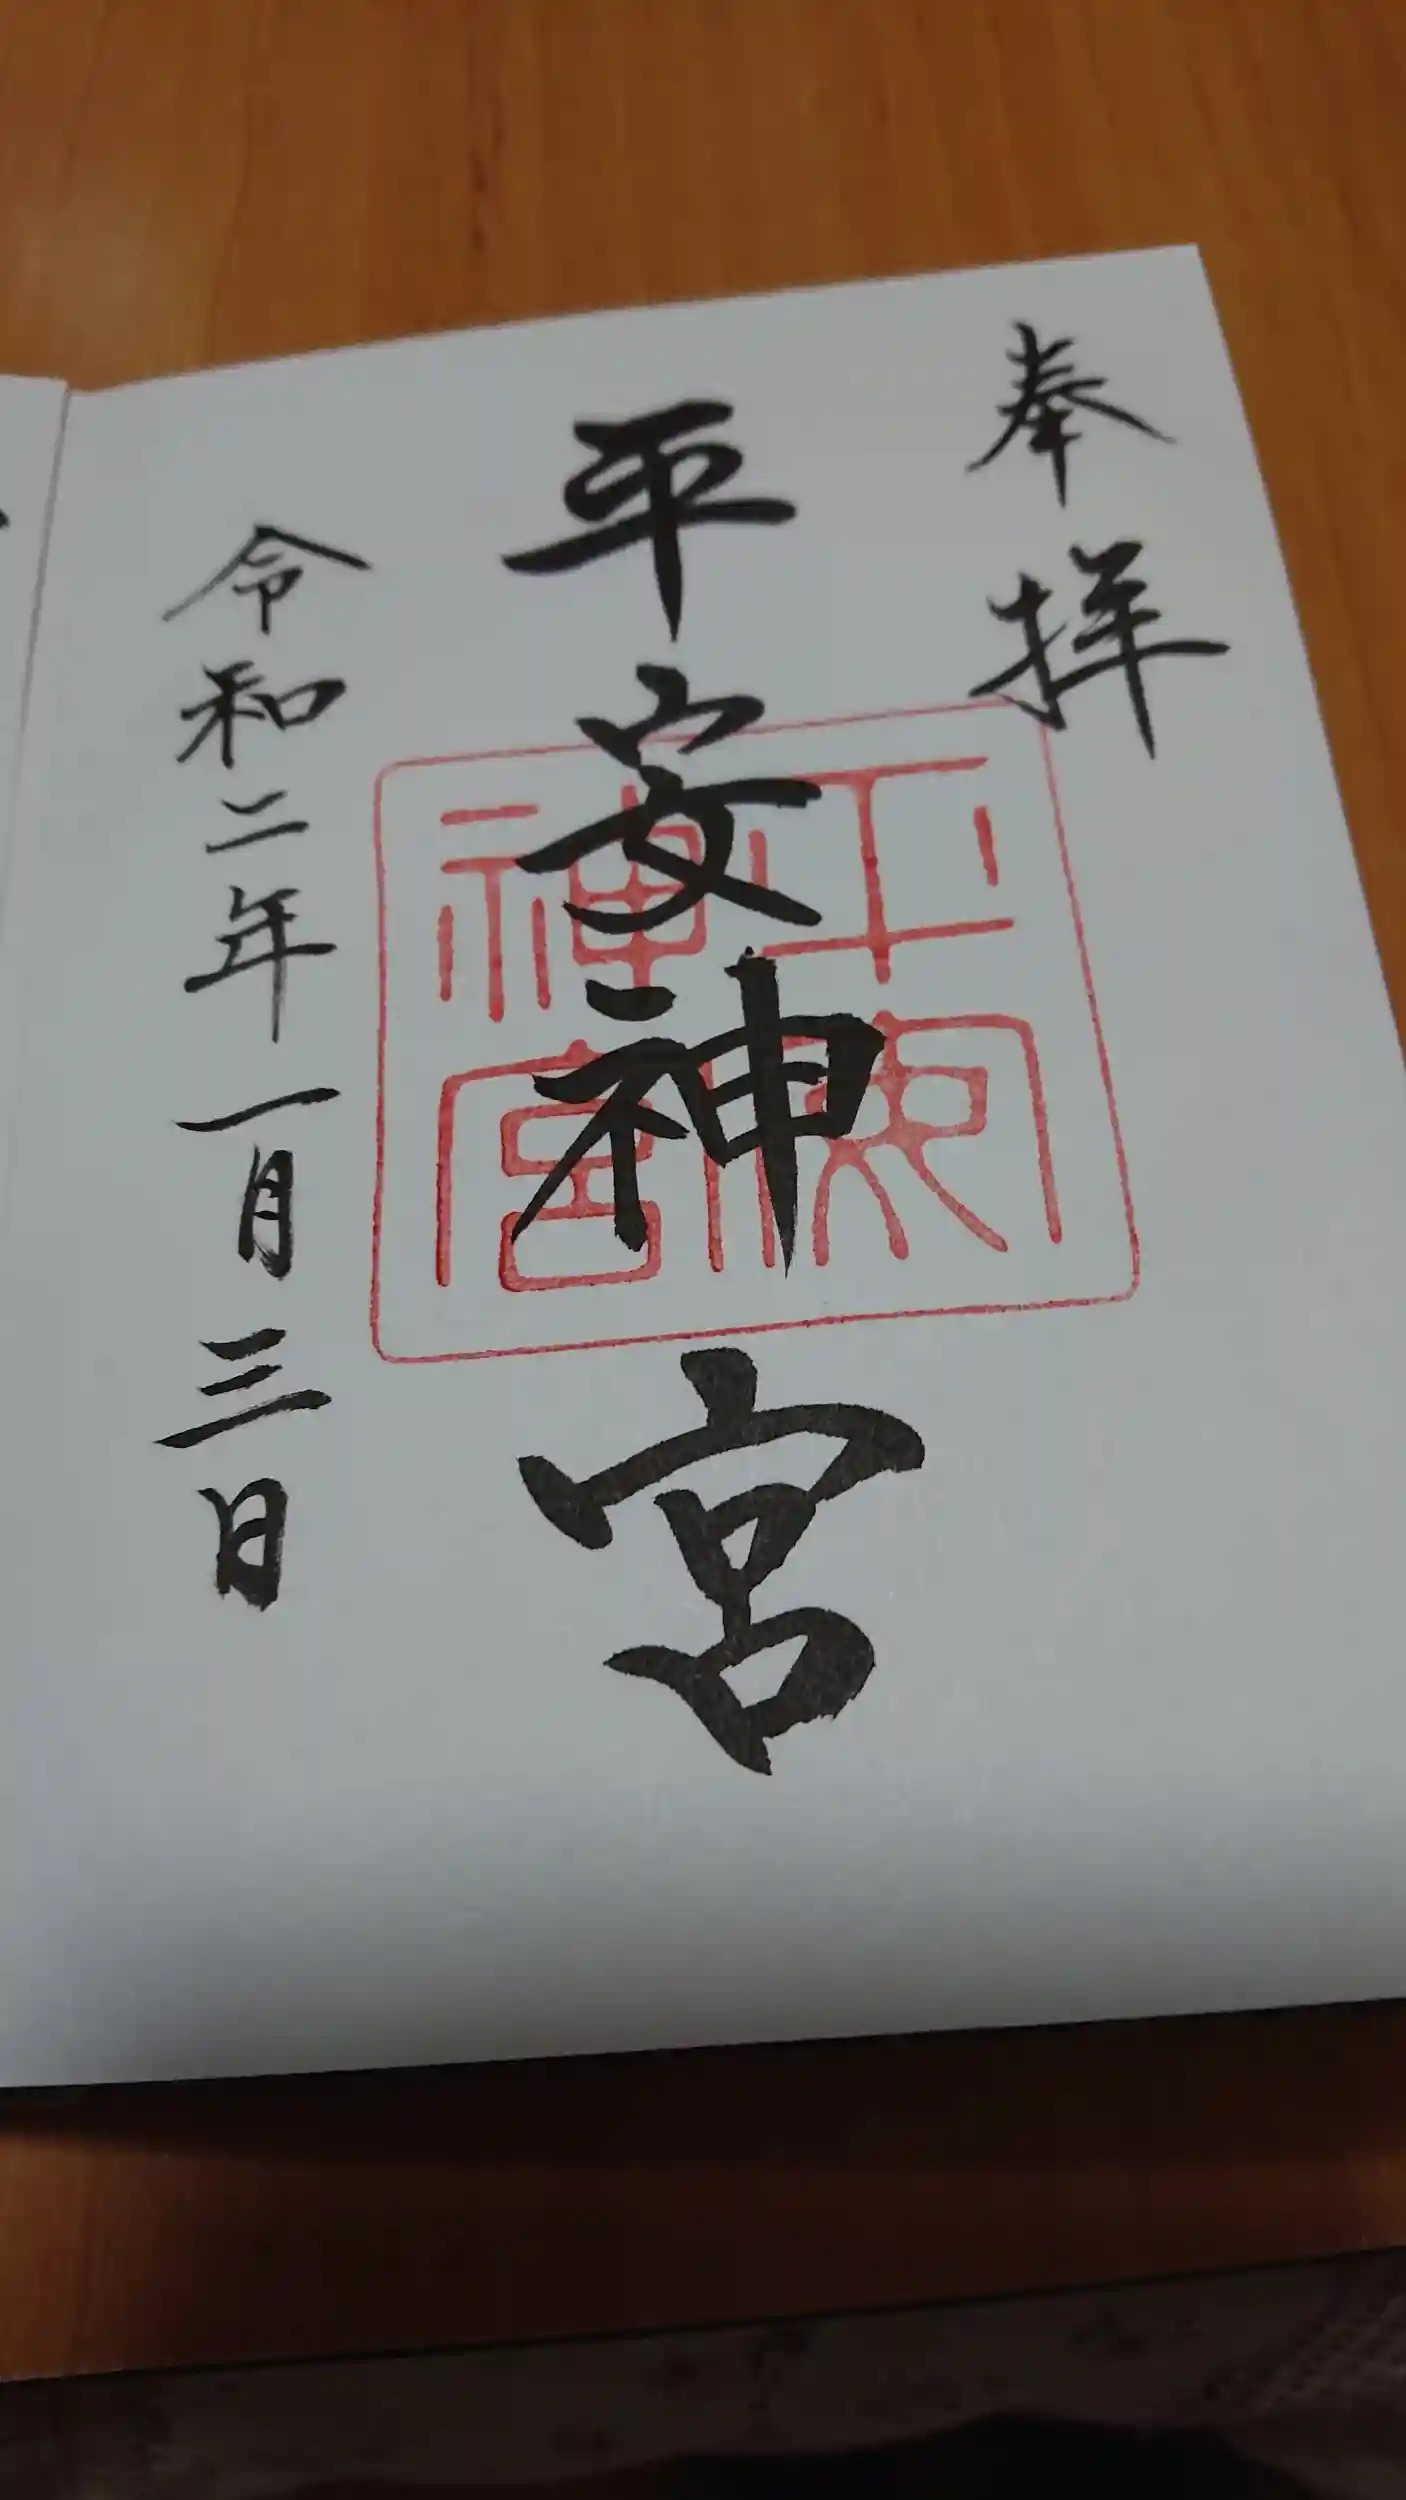 奉拝
平安神宮
平安神宮
令和二年一月三日